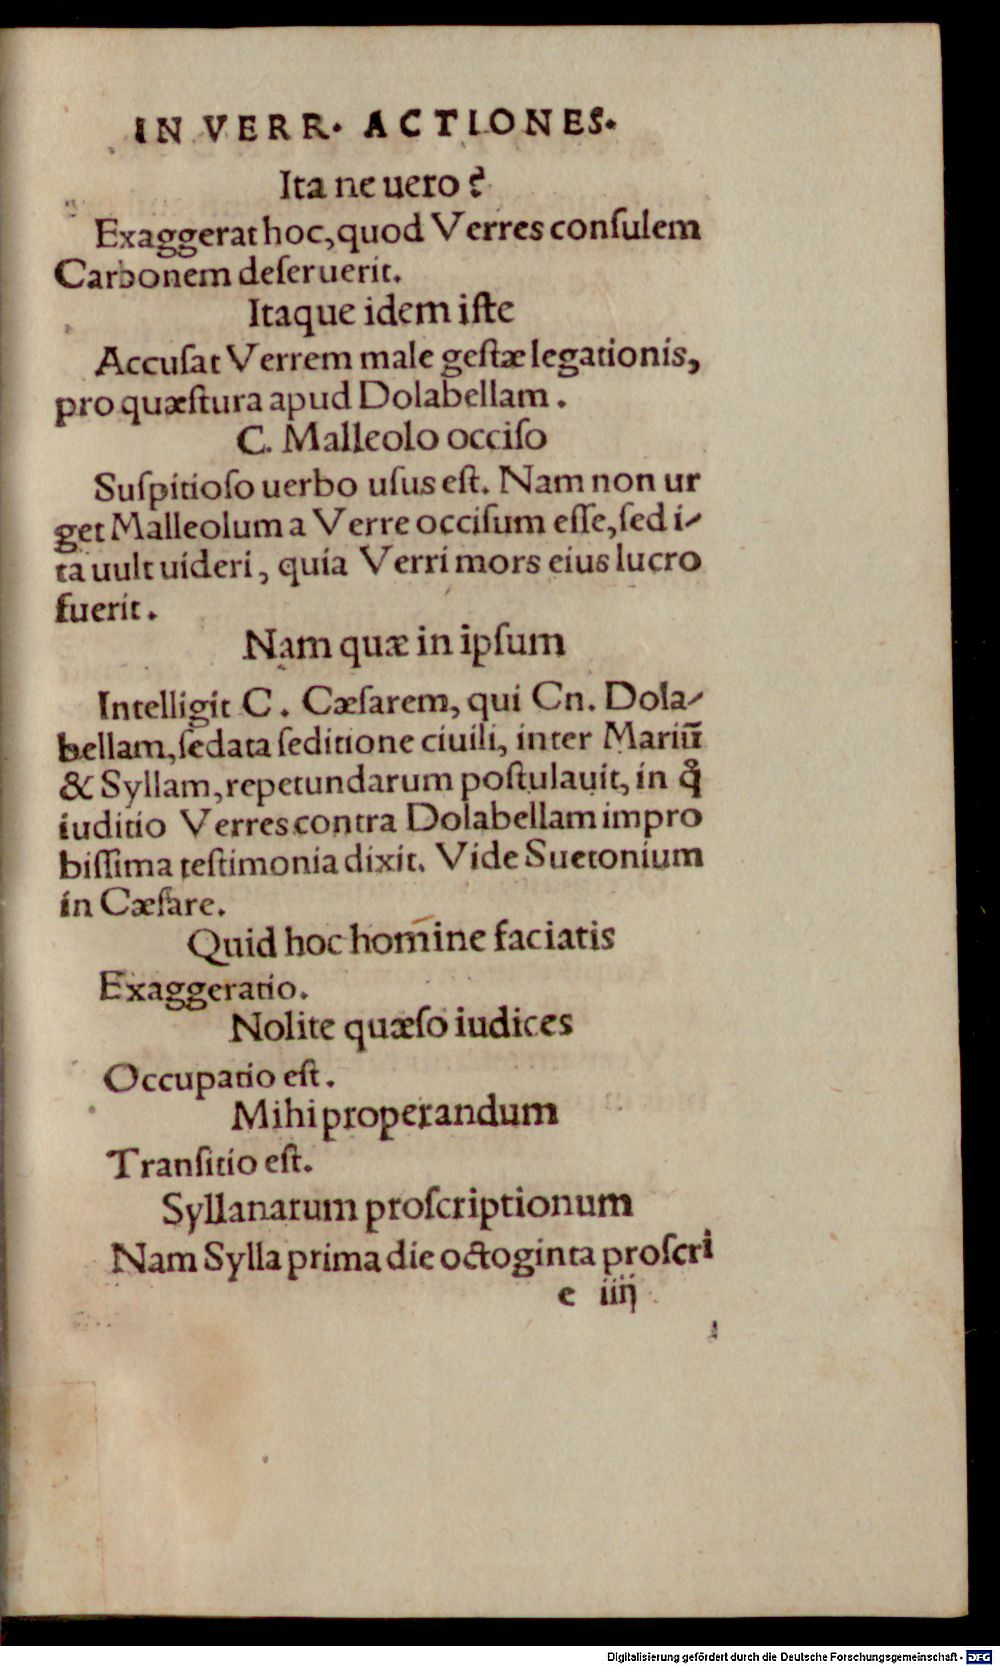 IN VERR. ACTIONES.
Ita ne uero?
Exaggerat hoc, quod Verres conſulem
Carbonem deſeruerit.
Itaque idem iſte
Accuſat Verrem male geſtæ legationis,
pro quæſtura apud Dolabellam.
C. Malleolo occiſo
Suſpitioſo uerbo uſus eſt. Nam non ur
get Malleolum a Verre occiſum eſſe, ſed i-
ta uult uideri, quia Verri mors eius lucro
fuerit.
Nam quæ in ipſum
Intelligit C. Cæſarem, qui Cn. Dola-
bellam, ſedata ſeditione ciuili, inter Mariū
& Syllam, repetundarum poſtulauit, in qͦ
iuditio Verres contra Dolabellam impro
biſſima teſtimonia dixit. Vide Suetonium
in Cæſare.
Quid hoc homīne faciatis
Exaggeratio.
Nolite quæſo iudices
Occupatio eſt.
Mihi properandum
Tranſitio eſt.
Syllanarum proſcriptionum
Nam Sylla prima die octoginta proſcri
e iiij
Digitalisierung gefördert durch die Deutsche Forschungsgemeinschaft - DFG